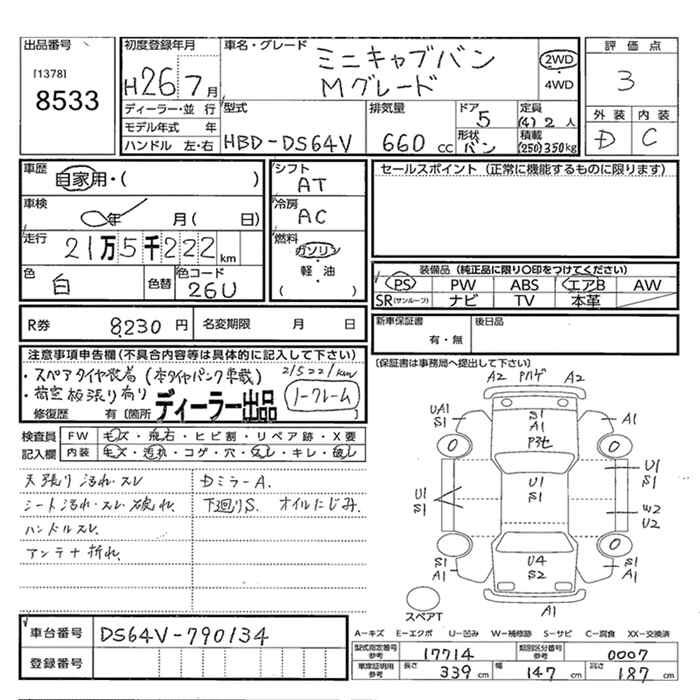 出品番号
[1378]
8533
初度登録年月
H26 7月
ディーラー・並 行
モデル年式 年
ハンドル 左・右
車名・グレード
ミニキャブバン
Mグレード
2WD
4WD
型式
HBD-DS64V
排気量
660 cc
ドア
5
形状
バン
定員
(4) 2 人
積載
(250)350kg
評価点
3
外装 内装
D C
車歴
自家用・( )
車検
年 月( 日)
走行
21万5千222km
色
白
色替
色コード
26U
シフト
AT
冷房
AC
燃料
ガソリン
・
軽・油
( )
セールスポイント (正常に機能するものに限ります)
装備品 (純正品に限り〇印をつけてください)
PS PW ABS エアB AW
SR(サンルーフ) ナビ TV 本革
R券 8230 円 名変期限 月 日
新車保証書
有・無
後日品
(保証書は事務局へ提出して下さい)
注意事項申告欄(不具合内容等は具体的に記入して下さい)
・スペアタイヤ装着(本タイヤパンク車載)
215221km
・荷室板張り有り
ノークレーム
修復歴 有〔箇所
ディーラー出品
検査員
記入欄
FW モズ・飛石・ヒビ割・リペア跡・X要
内装 キズ・汚れ・コゲ・穴・欠レ・キレ・破レ
天張り汚れ・スレ
シート汚れ・スレ・破れ.
ハンドルスレ.
アンテナ折れ.
DミラーA.
下廻りS. オイルにじみ.
A2 A2
UA1
S1
S1
A1
A1
0 0
U1
S1
U1
S1
U1
S1
W2
U2
0 0
S1
A1
U4
S2
S1
A1
A1
スペアT
A-キズ E-エクボ U-凹み W-補修跡 S-サビ C-腐食 XX-交換済
車台番号 DS64V-790134
登録番号
型式指定番号
参考
17714
類別区分番号
参考
0007
車庫証明用
参考
長さ
339 cm
幅
147 cm
高さ
187 cm